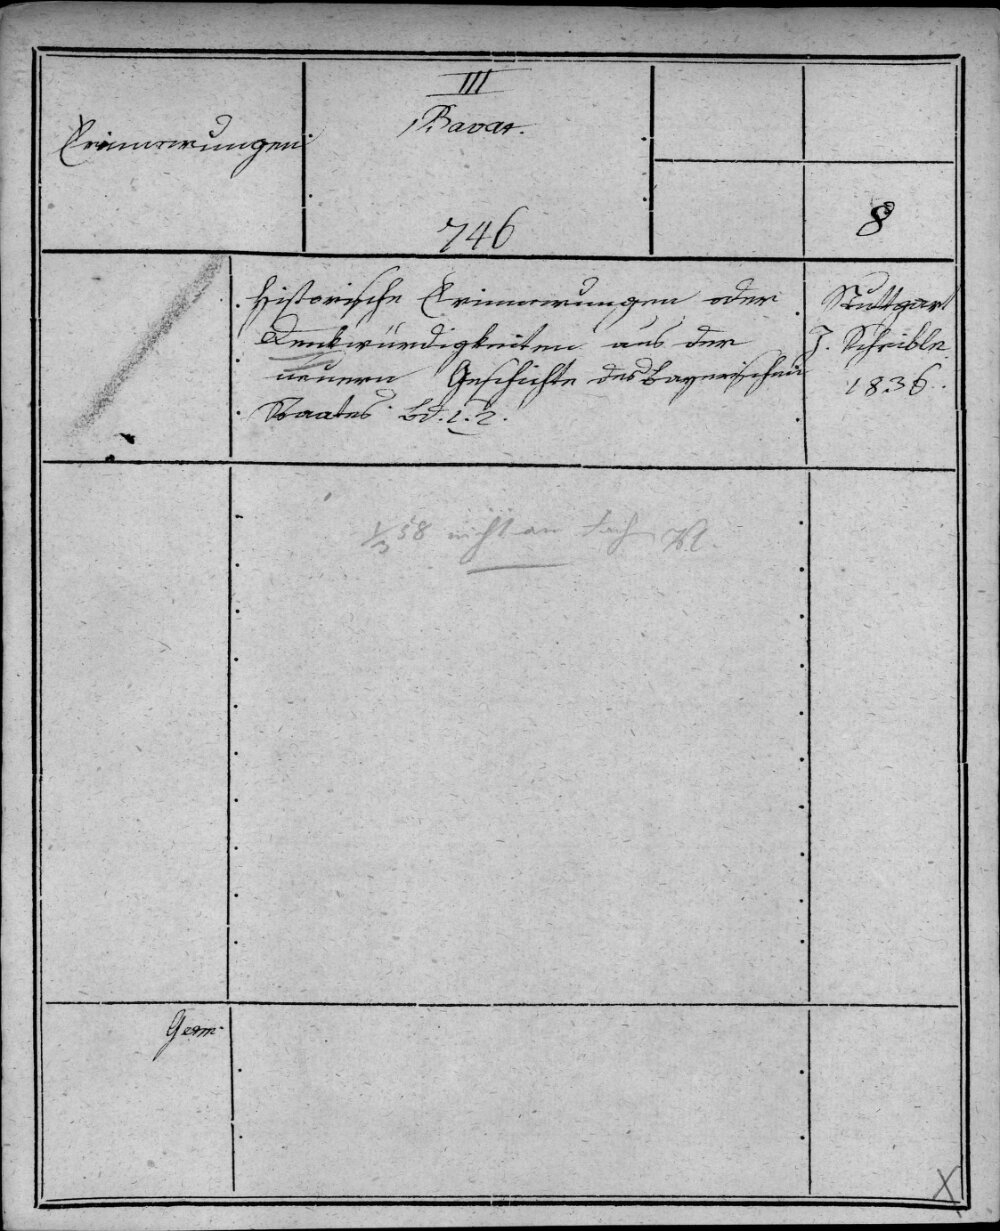 Erinnerungen
III
Bavar.
746
8
Historische Erinnerungen oder
Denkwürdigkeiten aus der
neuern Geschichte des bayerischen
Staates. Bd. 1. 2.
Stuttgart
J. Scheible
1836.
58 nicht an
Germ.
X